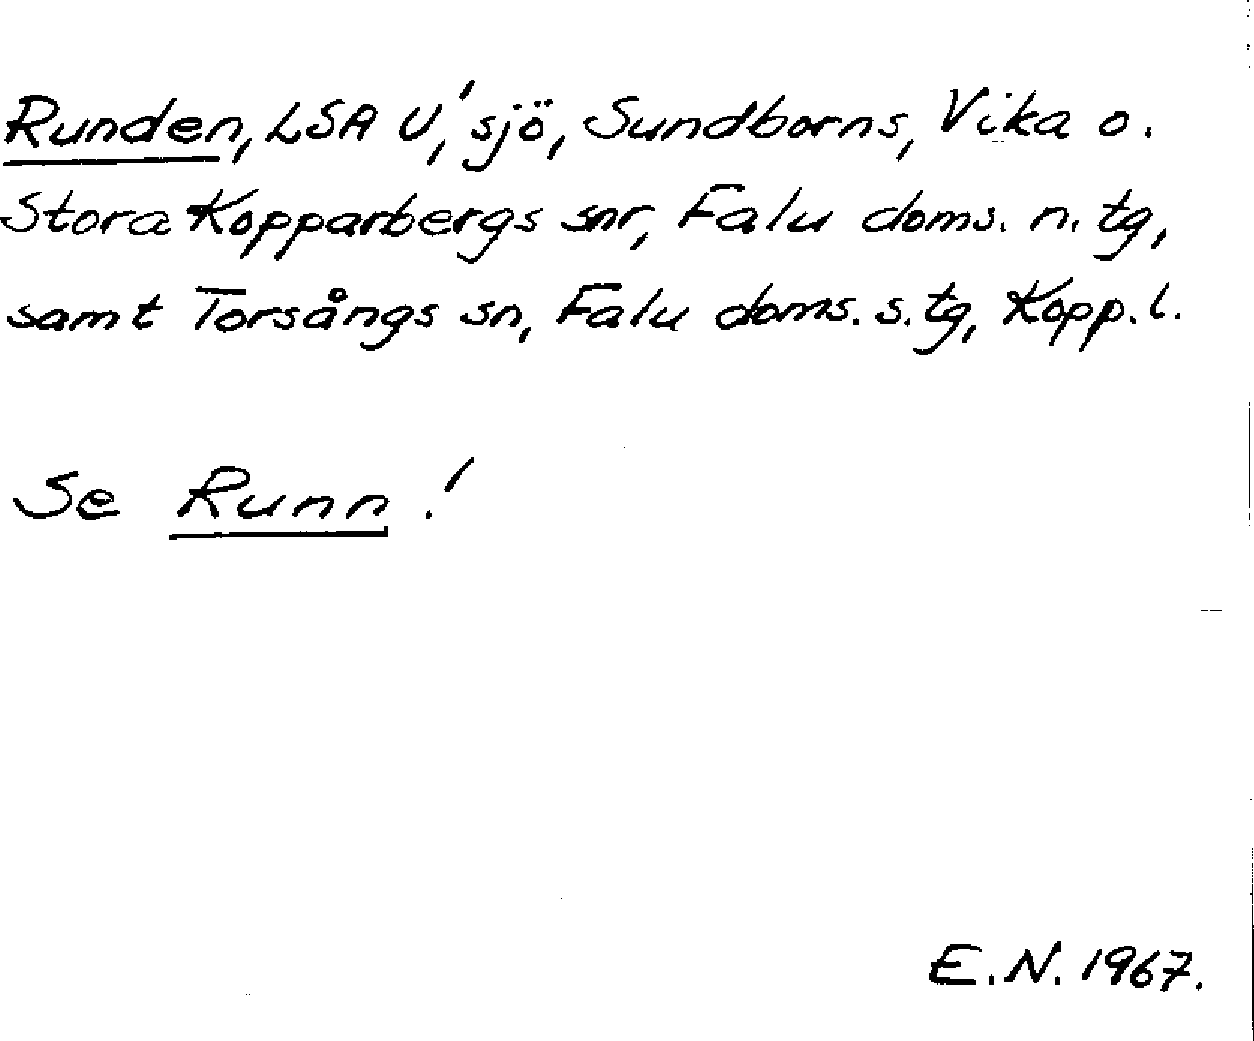 Runden, LSA U,' sjö, Sundborns, Vika o.
Stora Kopparbergs snr, Falu doms. n. tg,
samt Torsångs sn, Falu doms. s. tg, Kopp. l.
Se Runn!
E.N. 1967.